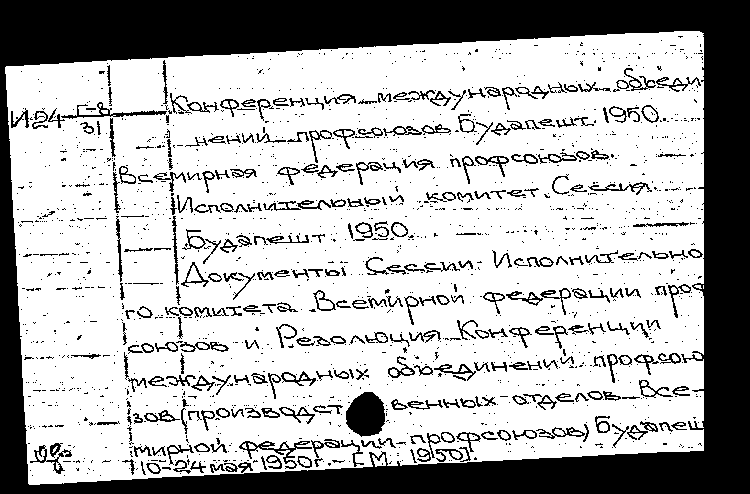 И24 Г-8/31 Конференция международных объеди-
нений профсоюзов. Будапешт. 1950.
Всемирная федерация профсоюзов.
Исполнительный комитет. Сессия.
Будапешт. 1950.
Документы Сессии Исполнительно
го комитета Всемирной федерации проф
союзов и Резолюция Конференции
международных объединений профсою
зов (производственных отделов Все-
мирной федерации профсоюзов) Будапеш
10-24 мая 1950г. - [М., 1950].